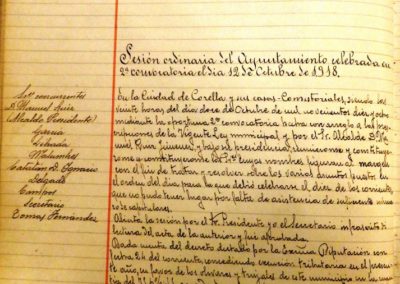 Sesión ordinaria del Ayuntamiento celebrada en
2ª convocatoria el día 12 de Octubre de 1918.
Sres. concurrentes
D. Manuel Ruiz
(Alcalde Presidente)
García
Delgado
Catalan D. Ignacio
Delgado
Campos
Secretario
Tomas Fernández
En la Ciudad de Corella y sus casas-Consistoriales, siendo las
veinte horas del día doce de Octubre de mil novecientos diez y ocho
mediante la oportuna 2ª convocatoria hecha con arreglo a las pres-
cripciones de la vigente Ley municipal y por el Sr. Alcalde D. Ma-
nuel Ruiz Jimenez y bajo su presidencia, reunieronse y constituye-
ronse los Sres. cuyos nombres figuran al margen
con el fin de tratar y resolver sobre los varios asuntos puestos en
el orden del día para la que debió celebrarse el diez de los corrientes
que no pudo tener lugar por falta de asistencia de suficiente número
de capitulares.
Abierta la sesión por el Sr. Presidente yo el Secretario infrascrito di
lectura del acta de la anterior y fué aprobada.
Dada cuenta del decreto dictado por la Excma Diputación con
fecha 2 del corriente, concediendo exención tributaria en el presen-
te año, en favor de los olivares y trujales de este municipio